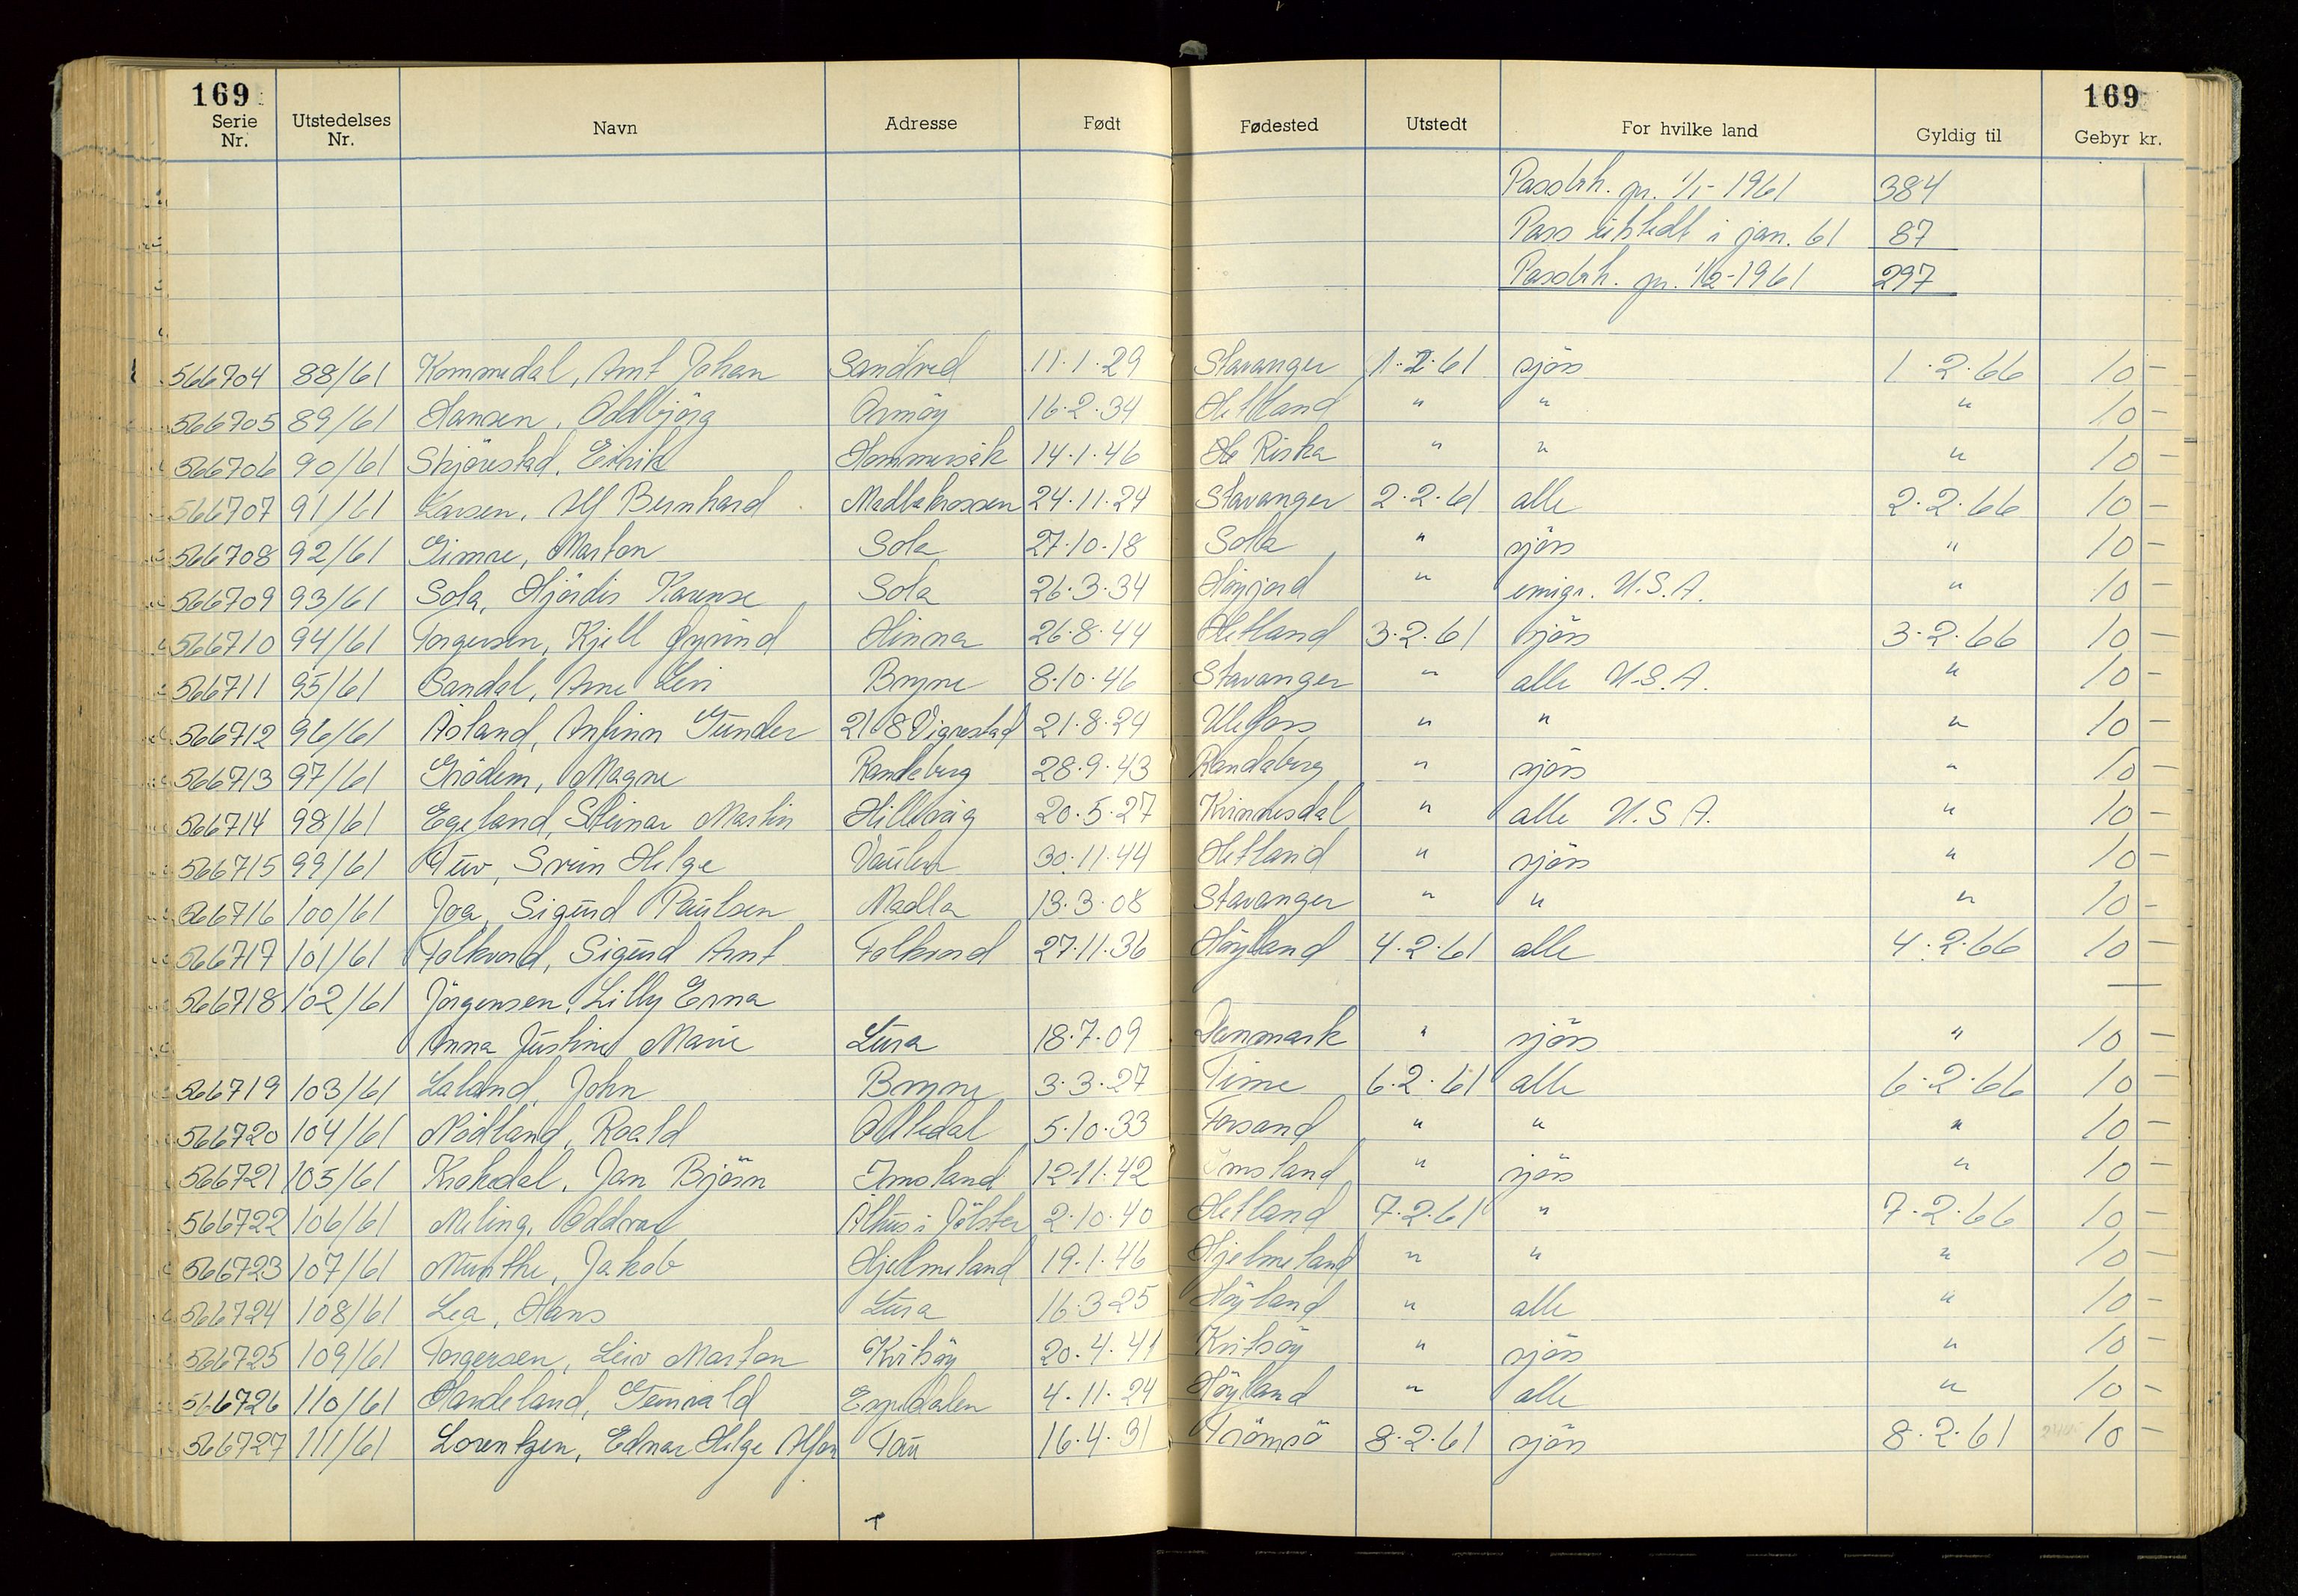 169 169
Serie Nr. Utstedelses Nr. Navn Adresse Født Fødested Utstedt For hvilke land Gyldig til Gebyr kr.
Passbh. pr. 1/1-1961 384
Pass utstedt i jan. 61 87
Passbh. pr. 1/2-1961 297
566704 88/61 Kommedal, Arnt Johan Sandved 11.1.29 Stavanger 1.2.61 sjös 1.2.66 10 -
566705 89/61 Hansen, Oddbjörg Ormöy 16.2.34 Hetland " " " 10 -
566706 90/61 Skjörestad, Eirik Hommersåk 14.1.46 Riska " " " 10 -
566707 91/61 Larsen, Alf Bernhard Madlakrossen 24.11.24 Stavanger 2.2.61 alle 2.2.66 10 -
566708 92/61 Gimre, Marton Sola 27.10.18 Sola " sjös " 10 -
566709 93/61 Sola, Hjördis Karense Sola 26.3.34 Höyjord " emigr. U.S.A. " 10 -
566710 94/61 Torgersen, Kjell Öyvind Hinna 26.8.44 Hetland 3.2.61 sjös 3.2.66 10 -
566711 95/61 Sandal, Arne Levi Bryne 8.10.46 Stavanger " alle U.S.A. " 10 -
566712 96/61 Åsland, Anfinn Gunder 2108 Vigrestad 21.8.24 Ulefoss " " " 10 -
566713 97/61 Grödem, Magne Randaberg 28.9.43 Randaberg " sjös " 10 -
566714 98/61 Egeland, Steinar Martin Hillevåg 20.5.27 Kvinnesdal " alle U.S.A. " 10 -
566715 99/61 Tuv, Svein Helge Vaulen 30.11.44 Hetland " sjös " 10 -
566716 100/61 Joa, Sigurd Paulsen Madla 13.3.08 Stavanger " " " 10 -
566717 101/61 Folkvord, Sigurd Arnt Folkvord 27.11.36 Höyland 4.2.61 alle 4.2.66 10 -
566718 102/61 Jörgensen, Lilly Erna
Anna Justine Marie Lura 18.7.09 Danmark " sjös " 10 -
566719 103/61 Laland, John Bryne 3.3.27 Time 6.2.61 alle 6.2.66 10 -
566720 104/61 Nödland, Roald Oltedal 5.10.33 Forsand " " " 10 -
566721 105/61 Krakedal, Jan Björn Imsland 12.11.42 Imsland " sjös " 10 -
566722 106/61 Meling, Oddvar Ålhus i Jölster 2.10.40 Hetland 7.2.61 " 7.2.66 10 -
566723 107/61 Munthe, Jakob Hjelmeland 19.1.46 Hjelmeland " " " 10 -
566724 108/61 Lea, Hans Lura 16.3.25 Höyland " alle " 10 -
566725 109/61 Torgersen, Leiv Marton Kvitsöy 20.4.41 Kvitsöy " sjös " 10 -
566726 110/61 Haudeland, Gunvald Espedalen 4.11.24 Höyland " alle " 10 -
566727 111/61 Lorentzen, Edmar Helge Alfon Tau 16.4.31 Tromsö 8.2.61 sjös 8.2.61 10 -